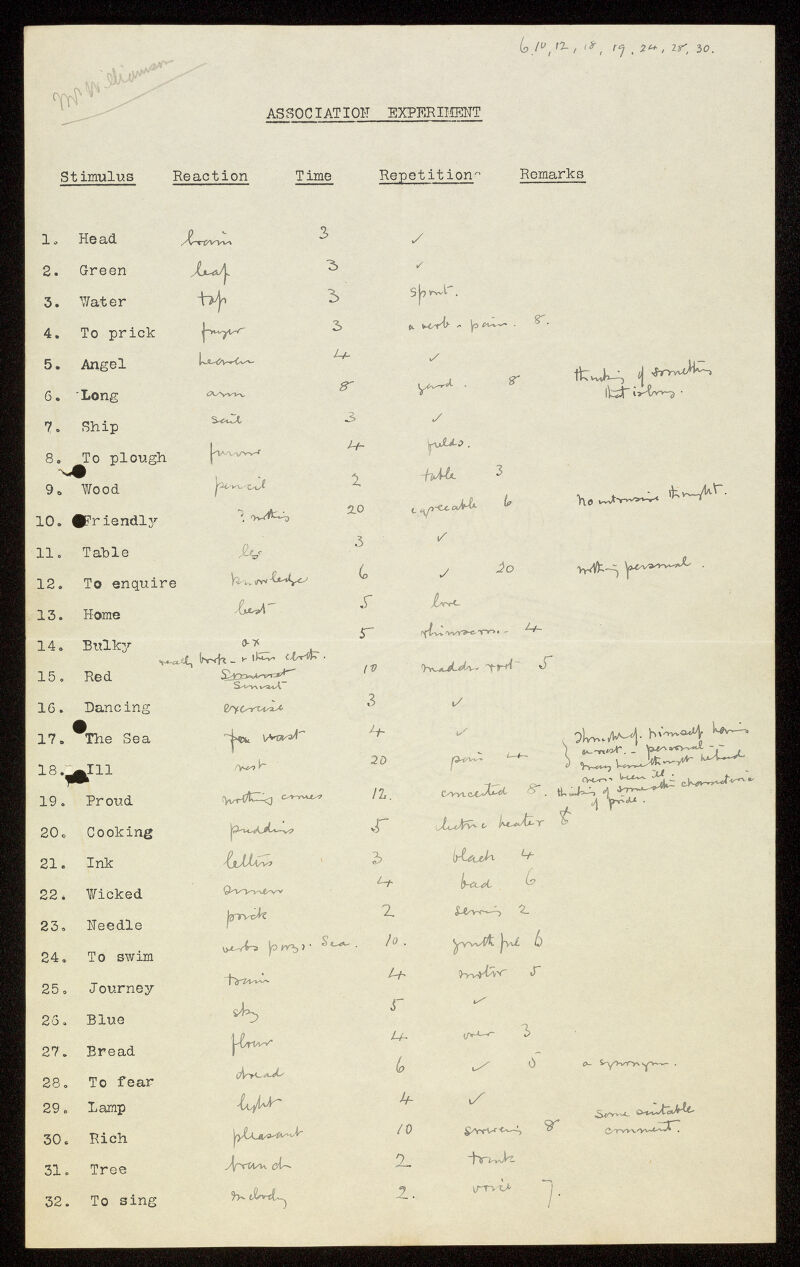 6, 10, 12, 18, 19, 24, 28, 30.
Mr Williamson
ASSOCIATION EXPERIMENT
Stimulus Reaction Time Repetition Remarks
1. Head brain 3 ✓
2. Green leaf 3 ✓
3. Water tap 3 spout.
4. To prick finger 3 a verb - pain. 8.
5. Angel heaven 4 ✓
6. Long arm 8 yard. 8 thinking of something
that is long.
7. Ship sail 3 ✓
8. To plough furrow 4 fields.
9. Wood pencil 2 table 3
10. Friendly ? nothing 20 agreeable 6 No intrusive thought.
11. Table leg 3 ✓
12. To enquire knowledge 6 ✓ 20 nothing personal.
13. Home best 5 love
14. Bulky ox 5 rhinoceros. - 4
book - cloth.
15. Red Somerset 10 madder root 5
Sunset
16. Dancing exercise 3 ✓
17. The Sea coast 4 ✓ Thought of himself having
a rest. - personal -
18. Ill rest 20 pain 4 may have thought he had
never been ill.
19. Proud nothing comes 12. conceited 8. thinking of some other characteristic
of pride.
20. Cooking pudding 5 electric heater 8
21. Ink letters 3 black 4
22. Wicked sinner 4 bad 6
23. Needle prick 2 sewing 2
24. To swim verbs Sea. 10. 6
25. Journey train 4 motor 5
26. Blue sky 5 ✓
27. Bread flour 4 3
28. To fear dread 6 ✓ 5 a synonym.
29. Lamp light 4 ✓
30. Rich pleasant 10 8 Some suitable
comment.
31. Tree branch 2 trunk
32. To sing melody 2. voice 7.